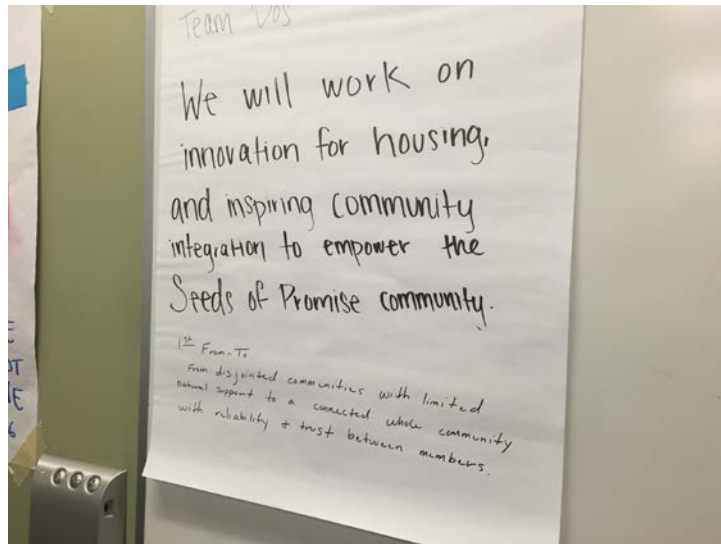 Team Dos
We will work on
innovation for housing,
and inspiring community
integration to empower the
Seeds of Promise community.
1st From-To
From disjointed communities with limited
natural support to a connected whole community
with reliability + trust between members.